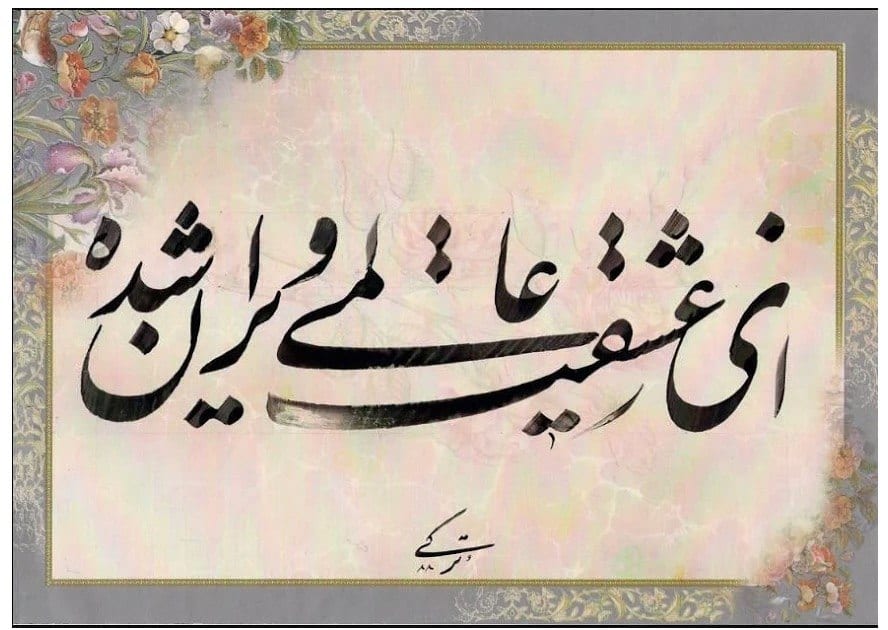 ای ز عشقت عالمی ویران شده
ترکی ۸۸